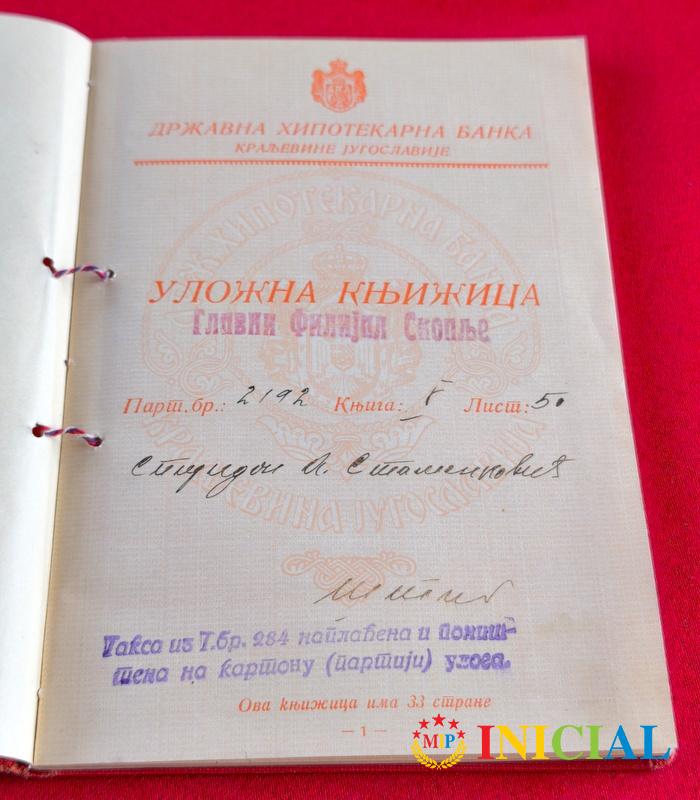 ДРЖАВНА ХИПОТЕКАРНА БАНКА
КРАЉЕВИНЕ ЈУГОСЛАВИЈЕ
УЛОЖНА КЊИЖИЦА
Главни Филијал Скопље
Парт. бр.: 2192 Књига: V Лист: 50
А. Стаменковић
Штип
Такса из Т.бр. 284 наплаћена и пониш-
тена на картону (партији) улога.
Ова књижица има 33 стране
— 1 —
MP INICIAL